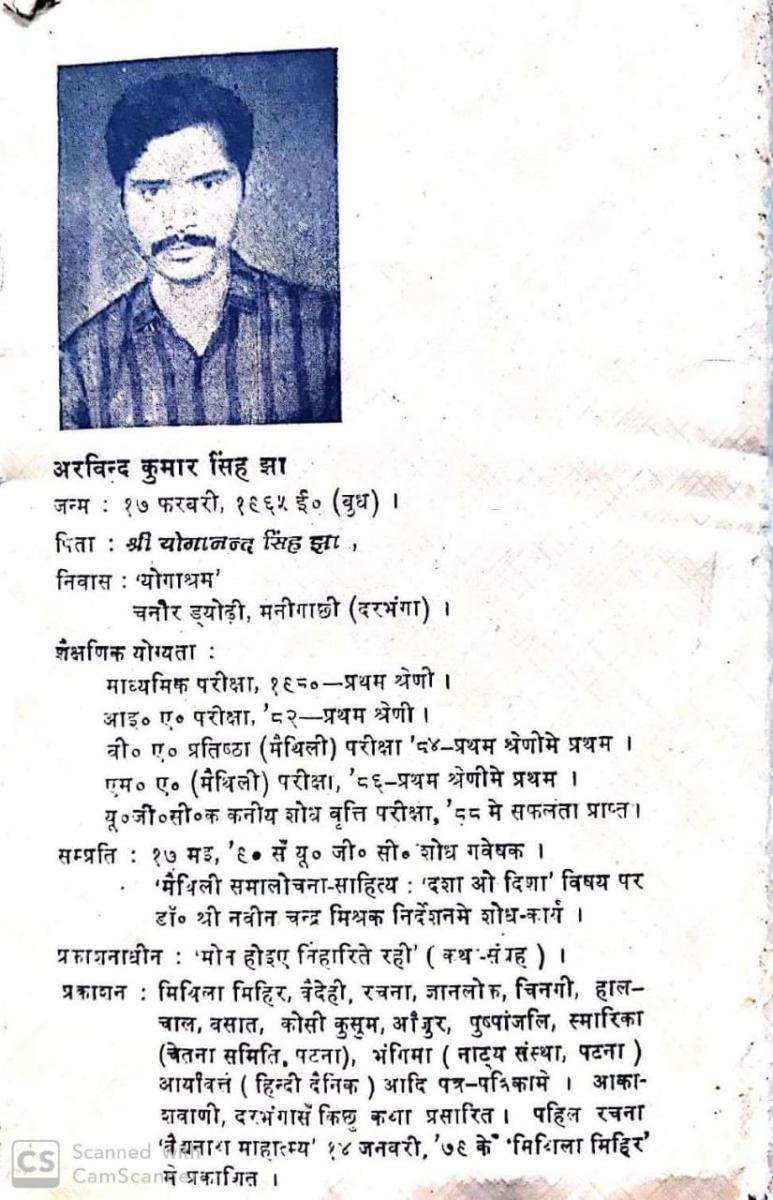 अरविन्द कुमार सिंह झा
जन्म : १७ फरबरी, १९६५ ई० (बुध) ।
पिता : श्री योगानन्द सिंह झा,
निवास : 'योगाश्रम'
चनौर ड्योढ़ी, मनीगाछी (दरभंगा) ।
शैक्षणिक योग्यता :
माध्यमिक परीक्षा, १९८०—प्रथम श्रेणी ।
आइ० ए० परीक्षा, '८२—प्रथम श्रेणी ।
बी० ए० प्रतिष्ठा (मैथिली) परीक्षा '८४-प्रथम श्रेणीमे प्रथम ।
एम० ए० (मैथिली) परीक्षा, '८६-प्रथम श्रेणीमे प्रथम ।
यू०जी०सी०क कनीय शोध वृत्ति परीक्षा, '८८ मे सफलता प्राप्त।
सम्प्रति : १७ मइ, '९० सँ यू० जी० सी० शोध गवेषक ।
'मैथिली समालोचना-साहित्य : 'दशा ओ दिशा' विषय पर
डॉ० श्री नवीन चन्द्र मिश्रक निर्देशनमे शोध-कार्य ।
प्रकाशनाधीन : 'मोन होइए निहारिते रही' ( कथा-संग्रह ) ।
प्रकाशन : मिथिला मिहिर, वैदेही, रचना, ज्ञानलोक, चिनगी, हाल-
चाल, वसात, कोसी कुसुम, आँजुर, पुष्पांजलि, स्मारिका
(चेतना समिति, पटना), भंगिमा ( नाट्य संस्था, पटना )
आर्यावर्त्त ( हिन्दी दैनिक ) आदि पत्र-पत्रिकामे । आका-
शवाणी, दरभंगासँ किछु कथा प्रसारित । पहिल रचना
'वैद्यनाथ माहात्म्य' १४ जनवरी, '७९ केँ 'मिथिला मिहिर'
मे प्रकाशित ।
CS Scanned with
CamScanner